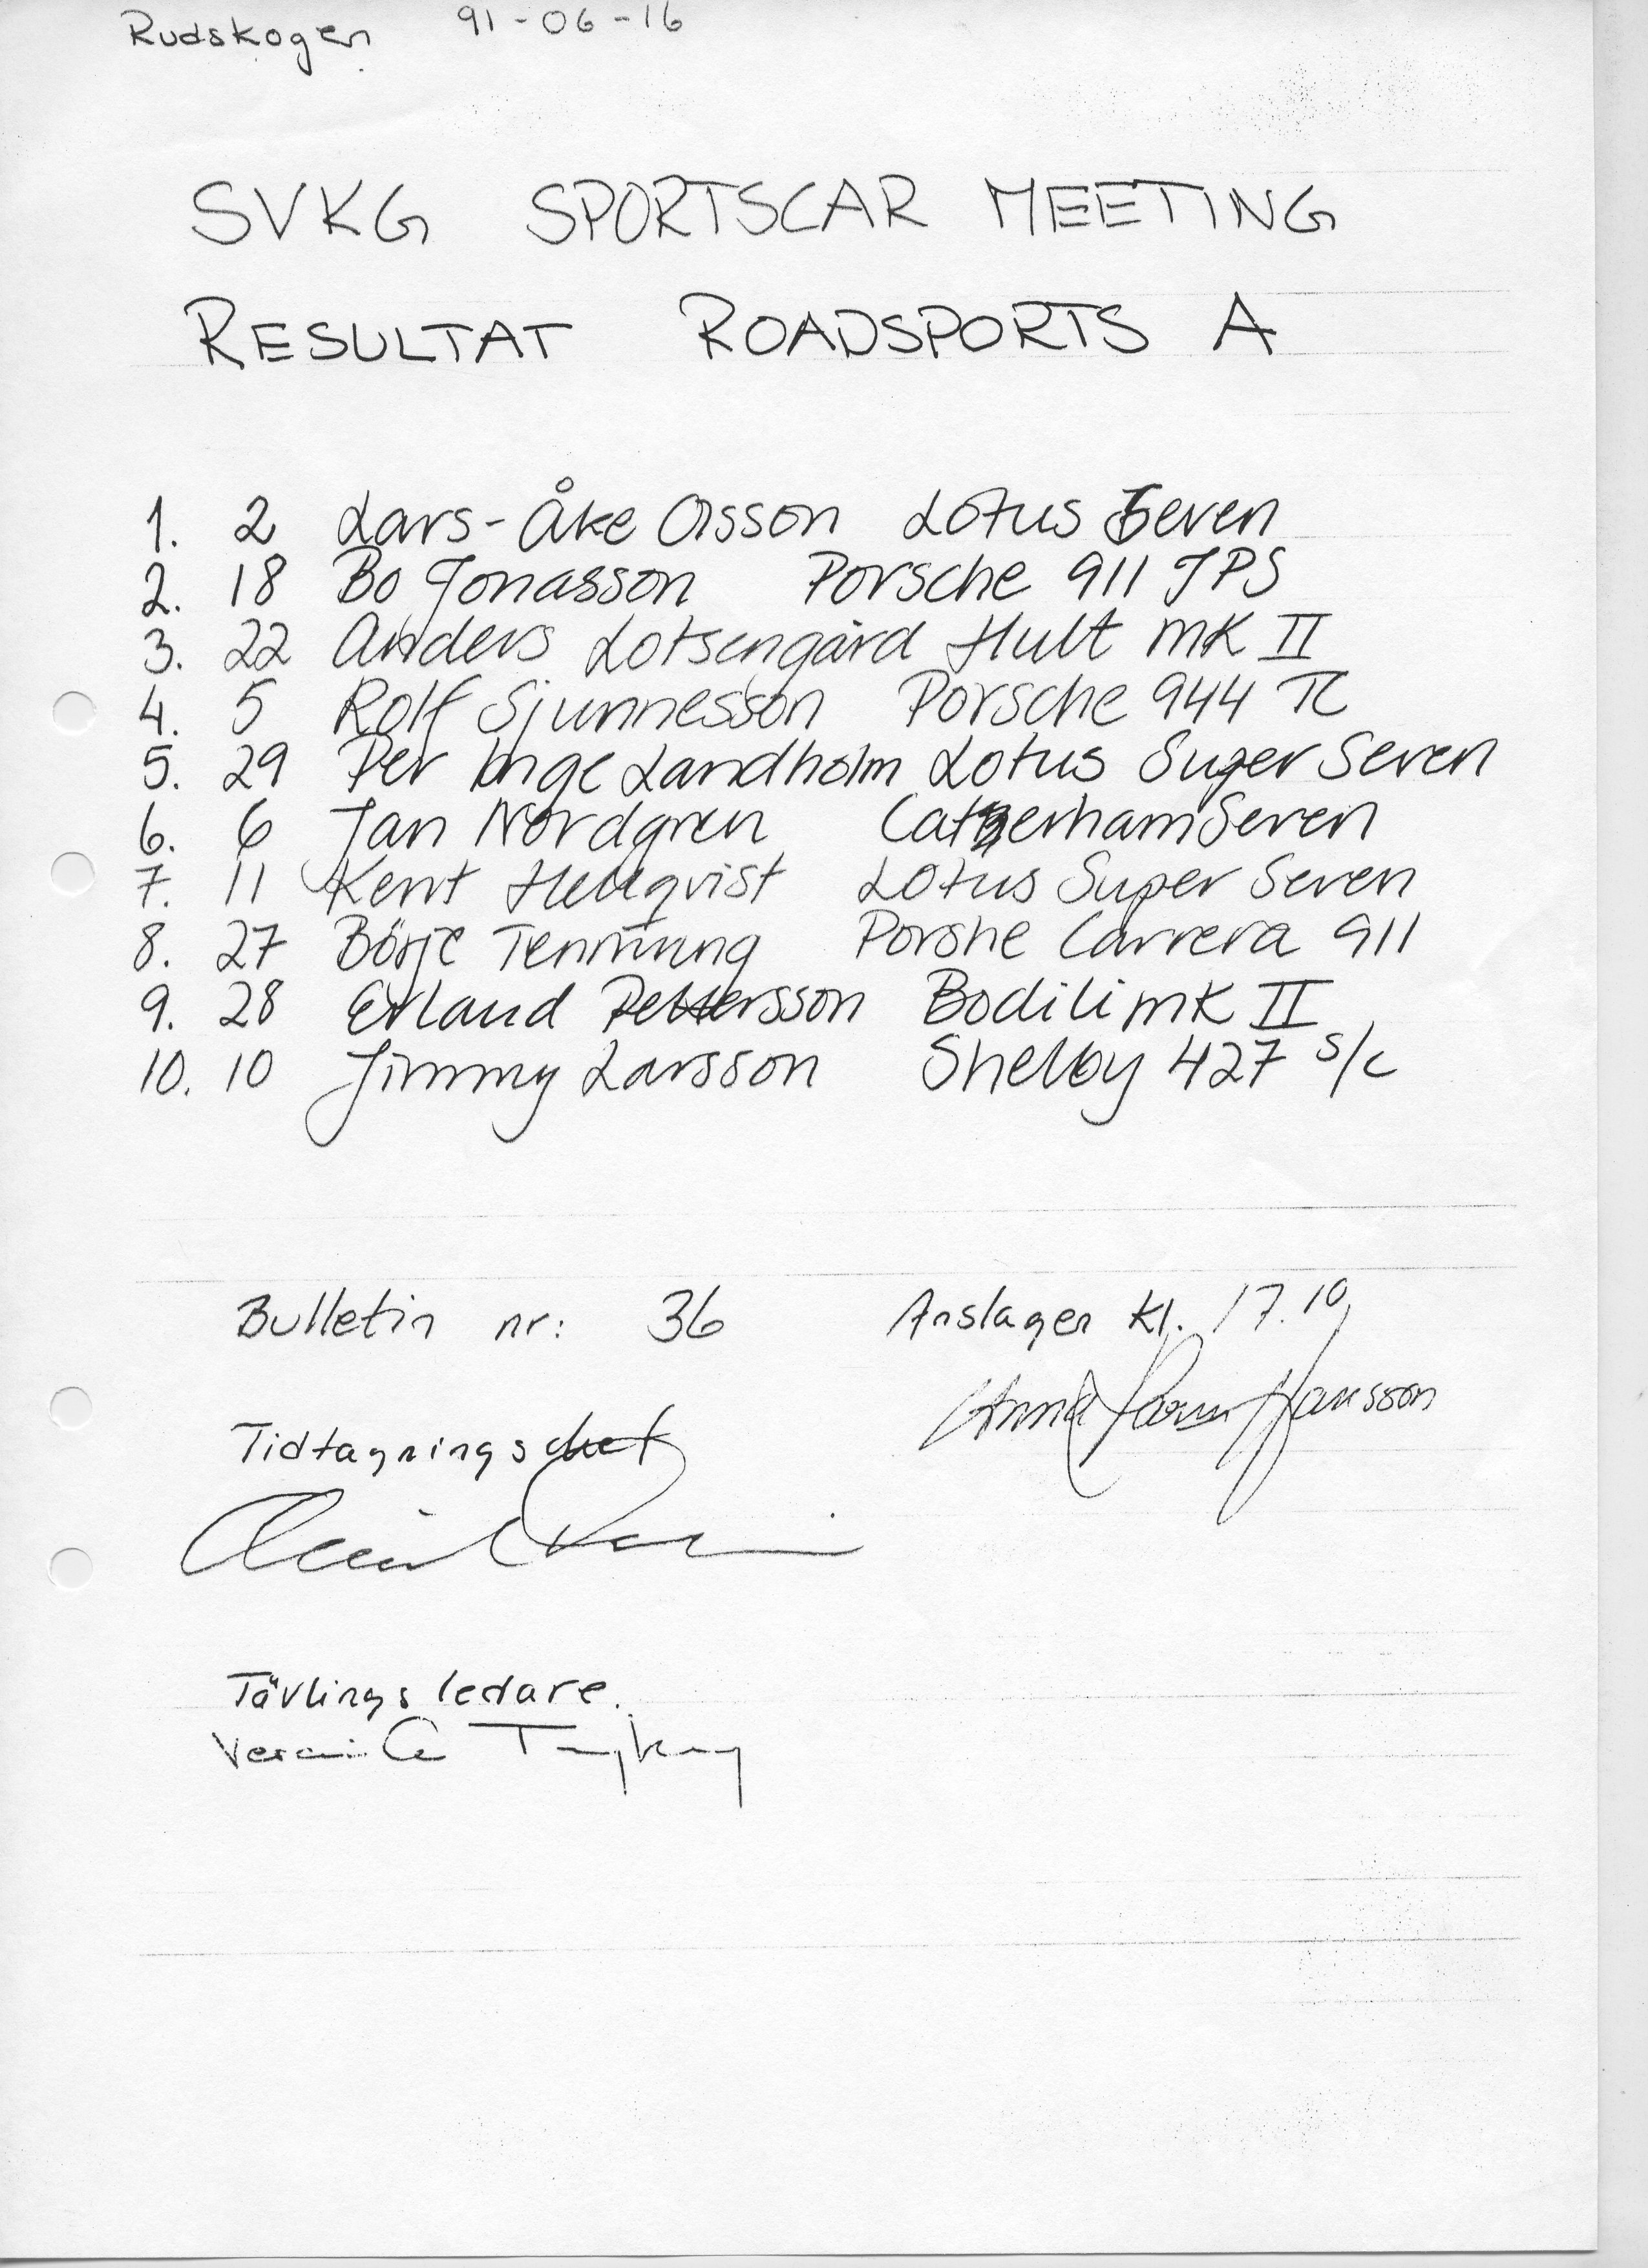 Rudskogen 91-06-16
SVKG SPORTSCAR MEETING
RESULTAT ROADSPORTS A
1. 2 Lars-Åke Olsson Lotus Seven
2. 18 Bo Jonasson Porsche 911 JPS
3. 22 Anders Lotsengård Hult MK II
4. 5 Rolf Sjunnesson Porsche 944 TC
5. 29 Per Inge Landholm Lotus Super Seven
6. 6 Jan Nordgren Catherham Seven
7. 11 Kent Hellqvist Lotus Super Seven
8. 27 Börje Porshe Carrera 911
9. 28 Erland Pettersson Bodili MK II
10. 10 Jimmy Larsson Shelby 427 S/C
Bulletin nr: 36 Anslagen Kl. 17.10
Hansson
Tidtagningschef
Tävlingsledare.